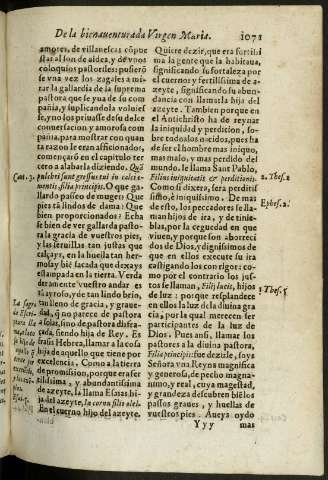 De la bienauenturada Virgen Maria. 1071
amores, de villanescas cõpue
stas al son de aldea, y de vnos
coloquios pastoriles: pusierõ
se vna vez los zagales a mi-
rar la gallardia de la suprema
pastora que se yua de su com
pañia, y suplicandola voluies
se, y no los priuasse de su dulce
conuersacion y amorosa com
pañia, para mostrar con quan
ta razon le eran aficionados,
començarõ en el capitulo ter
cero a alabarla diziendo. Quã
Cant. 7. pulchri sunt gressus tui in calcea-
mentis filia principis. O que ga-
llardo passeo de muger! Que
pies tã lindos de dama! Que
bien proporcionados! Echa
se bien de ver gallarda pasto-
ra la gracia de vuestros pies,
y las seruillas tan justas que
calçays, en la huella tan her
mosa y biẽ sacada que dexays
estampada en la tierra. Verda
deramente vuestro andar es
La sagra
da Escri-
ptura lla
ma hijo
de aquello
Esai. 5.
tã ayroso, y de tan lindo brio,
tan lleno de gracia, y graue-
dad, q̃ no parece de pastora
a solas, sino de pastora disfra-
çada, siendo hija de Rey. Es
frasis Hebrea, llamar a la cosa
hija de aquello que tiene por
excelencia. Como a la tierra
de promission, porque era fer
tilissima, y abundantissima
de azeyte, la llama Esaias hi-
ja del azeyte, In cornu filio olei.
En el cuerno hijo del azeyte.
Quiere dezir, que era fertilis
ma la gente que la habitaua,
significando su fortaleza por
el cuerno y fertilissima de
azeyte, significando su abun
dancia con llamarla hija del
azeyte. Tambien porque en
el Antichristo ha de reynar
la iniquidad y perdicion, so-
bre todos los nacidos, pues ha
de ser el hombre mas iniquo,
mas malo, y mas perdido del
mundo, le llama Sant Pablo,
Filius iniquitatis & perditionis. 2. Thes. 2
Como si dixera, sera perditis
sisto, è iniquissimo. De mas Ephes. 2.
de esto, los pecadores se lla-
man hijos de ira, y de tinie-
blas, por la ceguedad en que
viuen, y porque son aborreci
dos de Dios, y dignissimos de
que en ellos execute su ira
castigando los con rigor: co-
mo por el contrario los jus-
tos se llaman, Filij lucis, hijos 1. Thes. 5
de luz: porque resplandece
en ellos la luz de la diuina gra
cia, por la qual merecen ser
participantes de la luz de
Dios. Pues ansi, llamar los
pastores a la diuina pastora,
Filia principis: fue dezirle, soys
Señora vna Reyna magnifica
y generosa, de pecho magna-
nimo, y real, cuya magestad,
y grandeza descubren biẽ los
passos graues, y huellas de
vuestros pies. Aueys oydo
Yyy mas